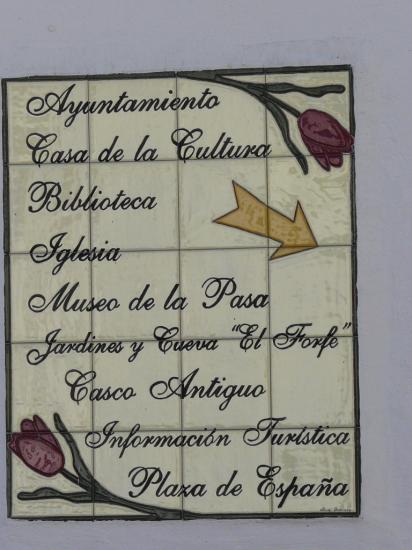 Ayuntamiento
Casa de la Cultura
Biblioteca
Iglesia
Museo de la Pasa
Jardines y Cueva "El Forfe"
Casco Antiguo
Información Turística
Plaza de España